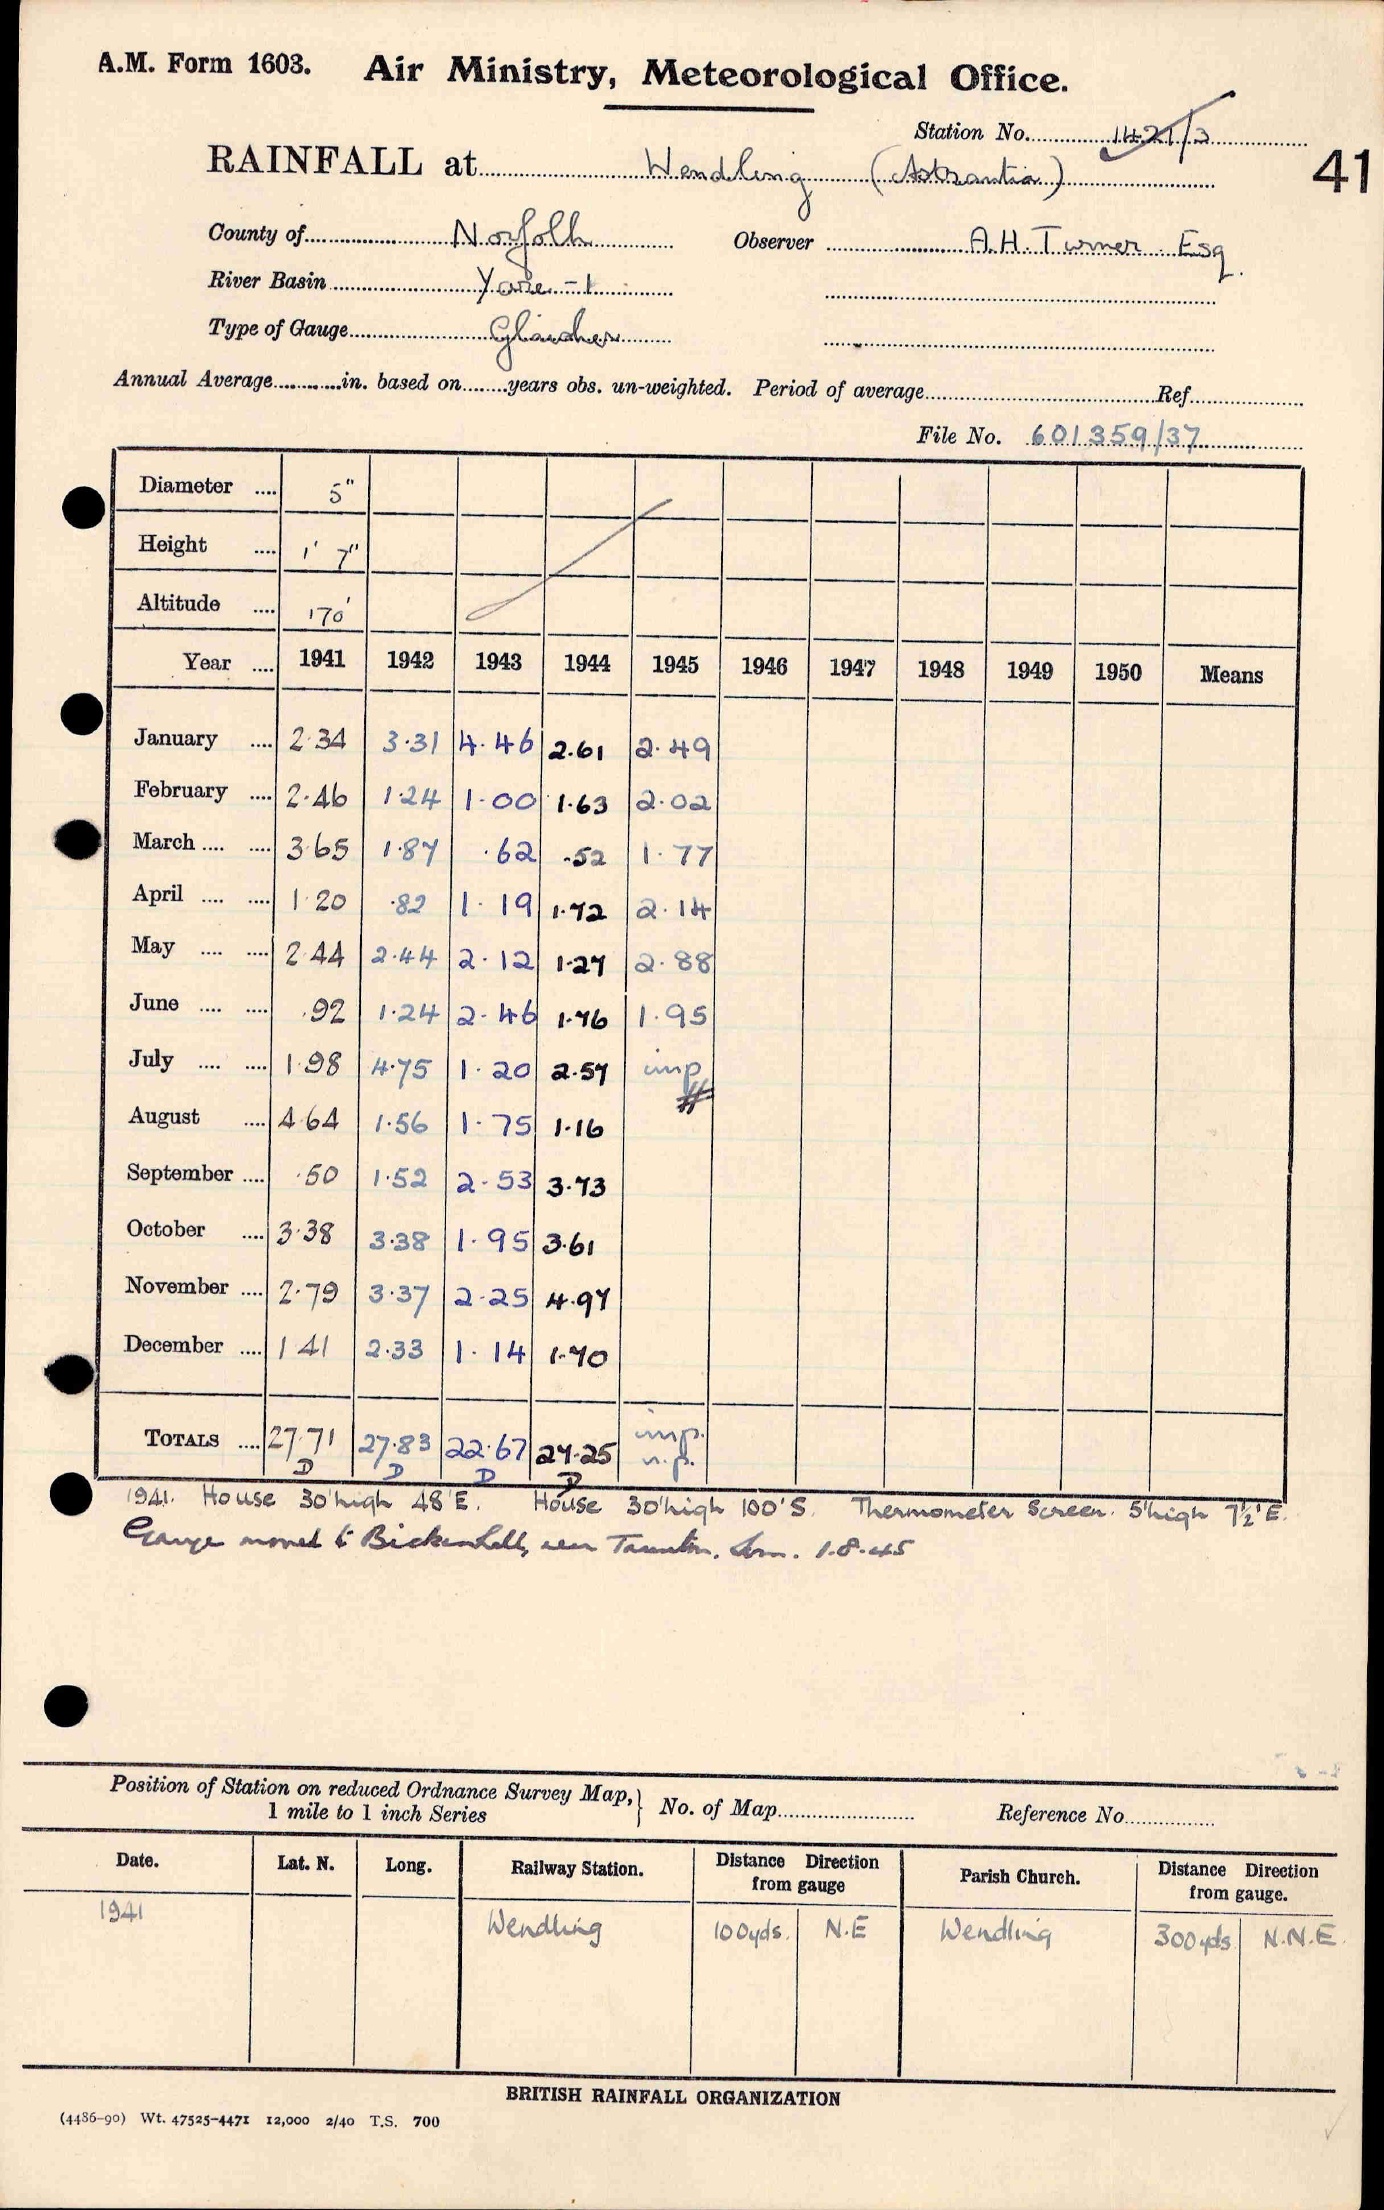 A.M. Form 1603. Air Ministry, Meteorological Office.
Station No. 1421/3
RAINFALL at Wendling (Astrantia)
41
County of Norfolk Observer A.H. Turner Esq.
River Basin Yare - 1
Type of Gauge Glaisher
Annual Average............in. based on........years obs. un-weighted. Period of average............Ref............
File No. 601359/37
Diameter .... 5"
Height .... 1' 7"
Altitude .... 170'
Year .... 1941 1942 1943 1944 1945 1946 1947 1948 1949 1950 Means
January .... 2.34 3.31 4.46 2.61 2.49
February .... 2.46 1.24 1.00 1.63 2.02
March .... .... 3.65 1.87 .62 .52 1.77
April .... .... 1.20 .82 1.19 1.72 2.14
May .... .... 2.44 2.44 2.12 1.27 2.88
June .... .... .92 1.24 2.46 1.76 1.95
July .... .... 1.98 4.75 1.20 2.57 imp
August .... 4.64 1.56 1.75 1.16
September .... .50 1.52 2.53 3.73
October .... 3.38 3.38 1.95 3.61
November .... 2.79 3.37 2.25 4.97
December .... 1.41 2.33 1.14 1.70
TOTALS .... 27.71 27.83 22.67 27.25 imp.
D D D D n.p.
1941. House 30' high 48' E. House 30' high 100' S. Thermometer Screen. 5' high 7½' E.
Gauge moved to Bickenhall, near Taunton, Som. 1.8.45
Position of Station on reduced Ordnance Survey Map, 1 mile to 1 inch Series } No. of Map............ Reference No............
Date. Lat. N. Long. Railway Station. Distance Direction from gauge Parish Church. Distance Direction from gauge.
1941 Wendling 100yds. N.E Wendling 300yds N.N.E.
BRITISH RAINFALL ORGANIZATION
(4486-90) Wt. 47525-4471 12,000 2/40 T.S. 700